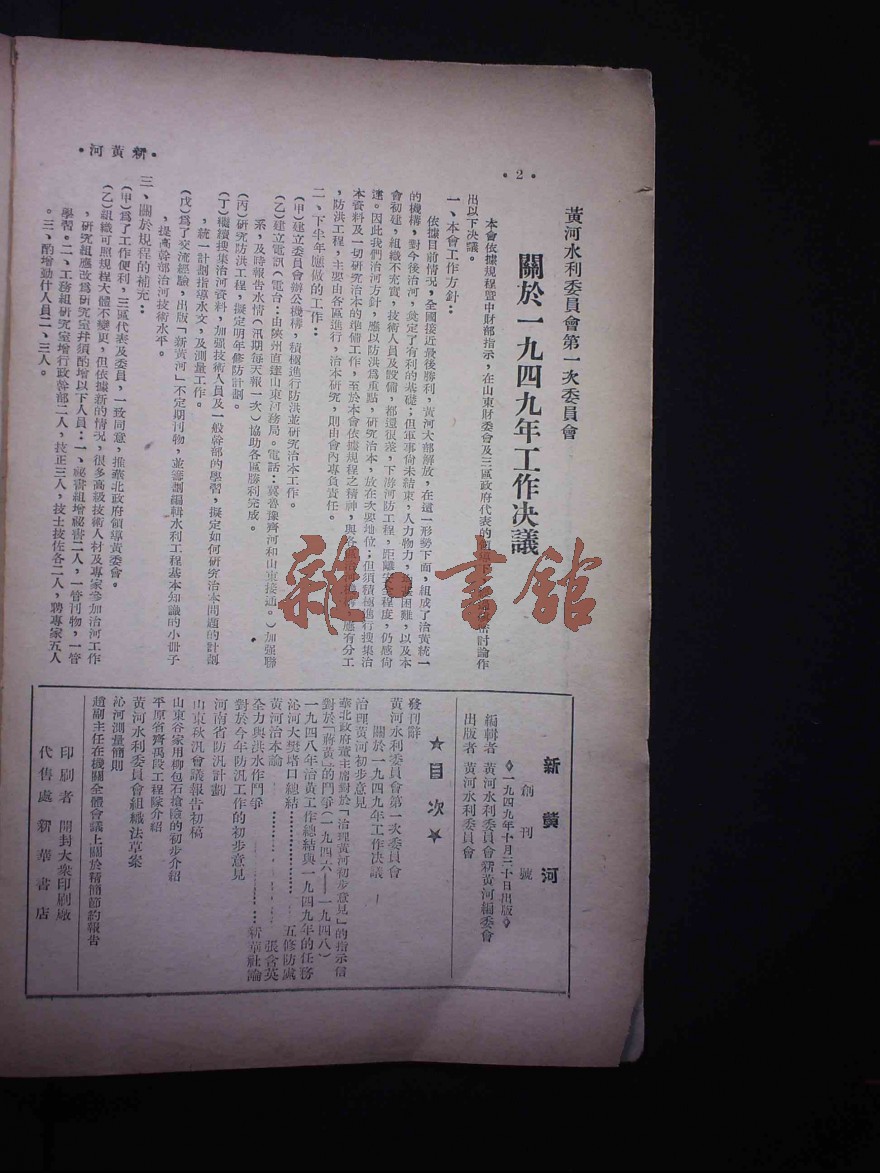 •新黃河•
•2•
黃河水利委員會第一次委員會
關於一九四九年工作决議
本會依據規程暨中財部指示，在山東財委會及三區政府代表的討論作
出以下决議。
一、本會工作方針：
依據目前情况，全國接近最後勝利，黃河大部解放，在這一形勢下面，組成了治黃統一
的機構，對今後治河，奠定了有利的基礎；但軍事尙未結束，人力物力，困難，以及本
會初建，組織不充實，技術人員及設備，都還很差，下游河防工程，距離程度，仍感尙
遠。因此我們治河方針，應以防洪爲重點，研究治本，放在次要地位；但須積極進行搜集治
本資料及一切研究治本的準備工作，至於本會依據規程之精神，與各應有分工
，防洪工程，主要由各區進行，治本研究，則由會內專負責任。
二、下半年應做的工作：
(甲)建立委員會辦公機構，積極進行防洪並研究治本工作。
(乙)建立電訊(電台：由陝州直達山東河務局。電話：冀魯豫齊河和山東接通。)加强聯
系，及時報告水情(汛期每天報一次)協助各區勝利完成。
(丙)研究防洪工程，擬定明年修防計劃。
(丁)繼續搜集治河資料，加强技術人員及一般幹部的學習，擬定如何研究治本問題的計劃
，統一計劃指導水文，及測量工作。
(戊)爲了交流經驗，出版「新黃河」不定期刊物，並籌劃編輯水利工程基本知識的小冊子
，提高幹部治河技術水平。
三、關於規程的補充：
(甲)爲了工作便利，三區代表及委員，一致同意，推華北政府領導黃委會。
(乙)組織可照規程大體不變更，但依據新的情况，很多高級技術人材及專家參加治河工作
，研究組應改爲研究室并須酌增以下人員：一、秘書組增秘書二人，一管刊物，一管
學習。二、工務組研究室增行政幹部二人，技正三人，技士技佐各二人，聘專家五人
。三、酌增勤什人員二、三人。
新黃河
創刊號
◊一九四九年十月三十日出版◊
編輯者 黃河水利委員會新黃河編委會
出版者 黃河水利委員會
★目次★
發刊辭
黃河水利委員會第一次委員會
關於一九四九年工作决議
治理黃河初步意見
華北政府董主席對於「治理黃河初步意見」的指示信
對於「蔣黃」的鬥爭(一九四六——一九四八)
一九四八年治黃工作總結與一九四九年的任務
沁河大樊堵口總結……五修防處
黃河治本論……張含英
全力與洪水作鬥爭……新華社論
對於今年防汎工作的初步意見
河南省防汎計劃
山東秋汎會議報告初稿
山東谷家用柳包石搶險的初步介紹
平原省齊禹段工程隊介紹
黃河水利委員會組織法草案
沁河測量簡則
趙副主任在機關全體會議上關於精簡節約報告
印刷者 開封大衆印刷廠
代售處 新華書店
雜·書館